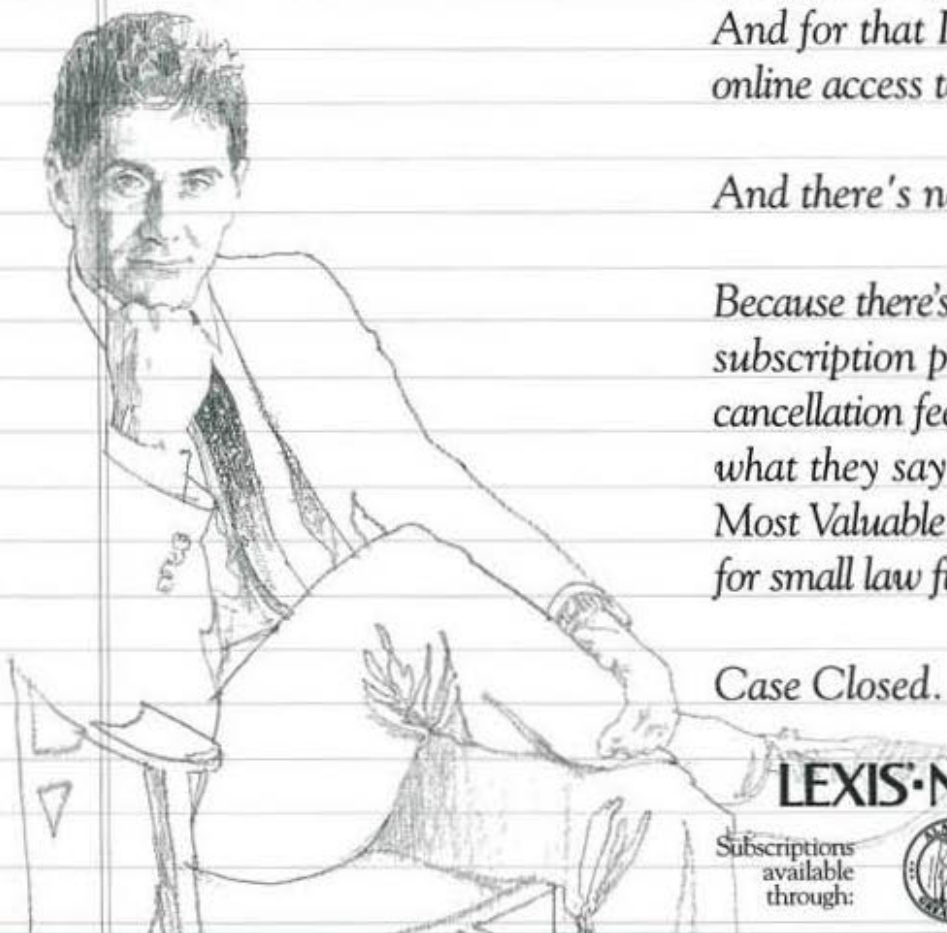 And for that
online access
And there's
Because there's
subscription
cancellation
what they say
Most Valuable
for small law
Case Closed.
LEXIS·
Subscriptions
available
through: